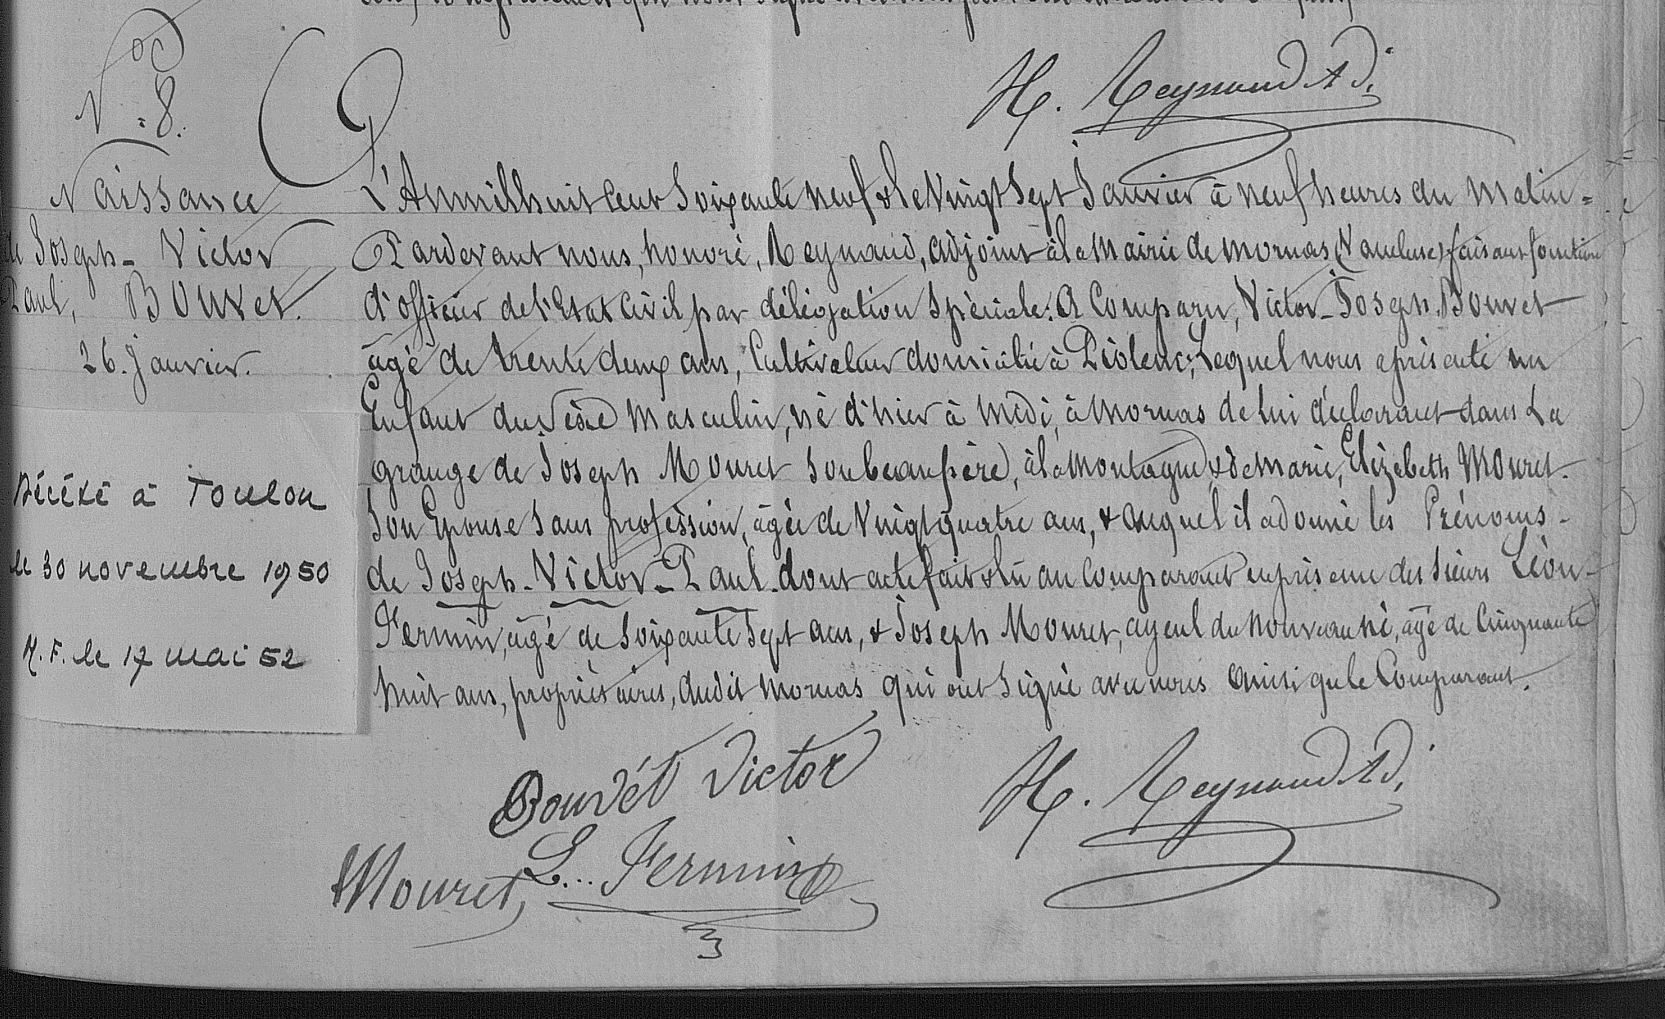 H. Reynaud Ad.
N° 8.
Naissance
de Joseph - Victor
Paul, Bouvet.
26. janvier.
L'An mil huit cent soixante neuf & le Vingt sept Janvier à neuf heures du Matin =
Pardevant nous, honoré, Reynaud, adjoint à la Mairie de Mornas (Vaucluse) faisant fonctions
d'officier de l'Etat Civil par délégation Spéciale: A Comparu, Victor - Joseph. Bouvet
âgé de trente deux ans, Cultivateur domicilié à Piolenc; Lequel nous a présenté un
Enfant du Sexe Masculin, né d'hier à Midi, à Mornas de lui déclarant dans La
grange de Joseph Mouret son beau père, à la Montagne, & de Marie, Elizabeth Mouret.
Son Epouse Sans profession, âgée de Vingt quatre ans, & auquel il a donné les Prénoms -
de Joseph - Victor - Paul. dont acte fait & lu au Comparant en présence des Sieurs Léon -
Fermin, âgé de Soixante Sept ans, & Joseph Mouret, ayeul du nouveau né, âgé de Cinquante
huit ans, propriétaires, dudit Mornas qui ont signé avec nous ainsi que le Comparant.
Décédé à Toulon
le 30 novembre 1950
M. F. le 17 mai 52
Bouvét Victor
H. Reynaud Ad.
Mouret, L... Fermin